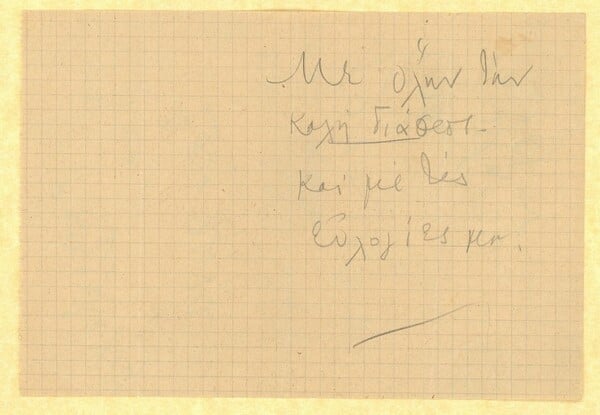 Μὲ ὅλην τὴν
καλὴ διάθεσι
καὶ μὲ τὲς
εὐλογίες μου.